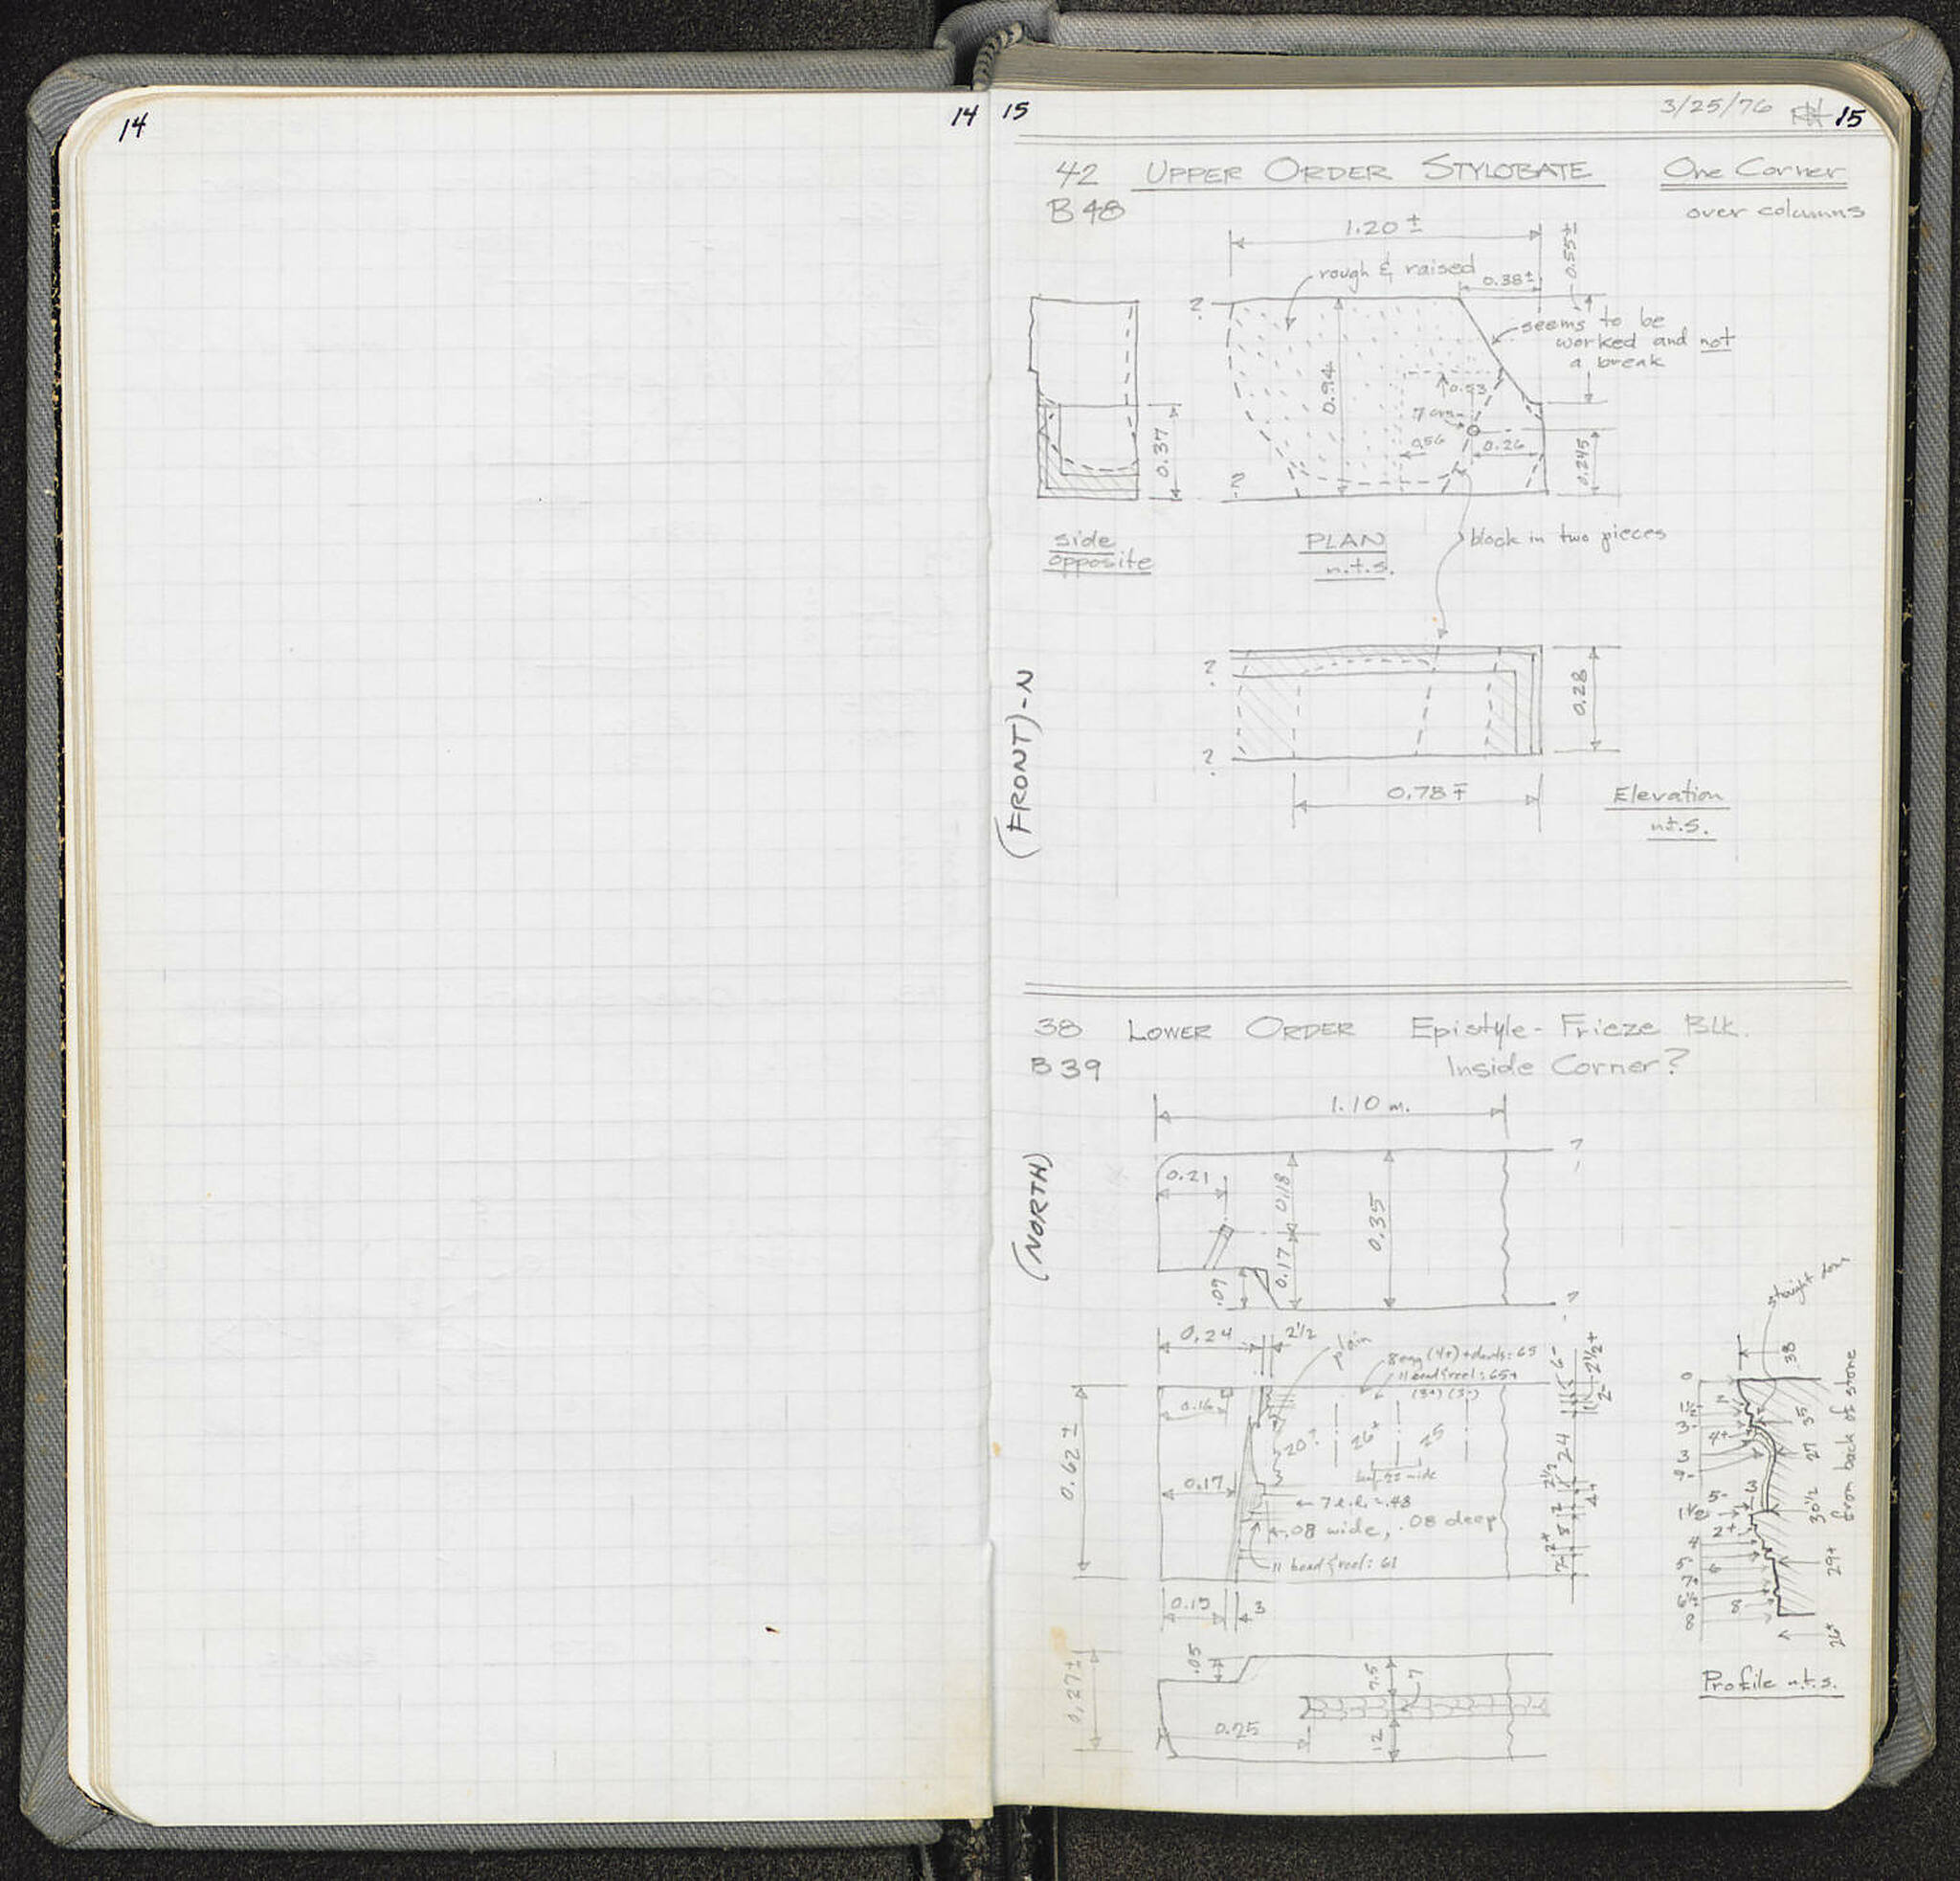 14
14
15
3/25/76
15
42 UPPER ORDER STYLOBATE One Corner
B48 over columns
1.20 ±
0.55±
rough & raised
0.38±
?
seems to be
worked and not
a break
0.94
0.53
7 cm
0.56
0.26
0.245
0.37
?
side
opposite
PLAN
n.t.s.
block in two pieces
(FRONT)-N
?
?
0.28
0.78 ∓
Elevation
n.t.s.
38 LOWER ORDER Epistyle - Frieze BLK.
B39 Inside Corner?
1.10 m.
(NORTH)
?
0.21
0.18
0.35
0.17
.09
?
0.24
2 1/2
plain
8 egg (4+) + darts: 65
11 bead & reel: 65+
(3+) (3-)
6-
2 1/2+
2-
0.16
20?
26+
25
24
0.62 ±
0.17
2 1/2
4+
← 7 l.l. = .48
←.08 wide, .08 deep
2
8
2+
7-
11 bead & reel: 61
0.15
3
.05
7.5
7
0.27±
0.25
12
straight
.38
0
3-
3
4+
35
27
5-
3
30 1/2
from back of stone
1 1/2
2+
4
5-
6
29+
7+
6 1/2
8
8
26+
Profile n.t.s.